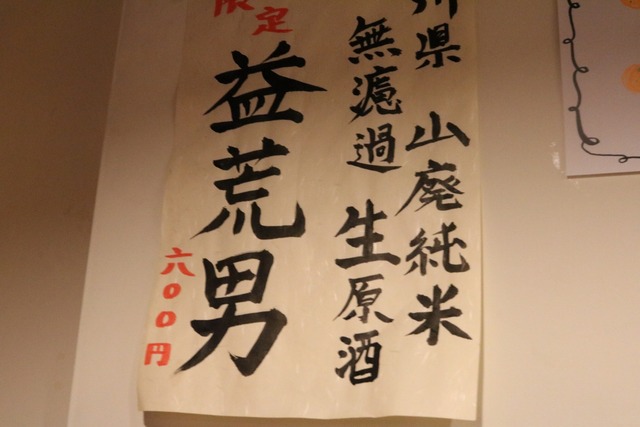 川県 山廃純米
無濾過 生原酒
限定
益荒男
六〇〇円